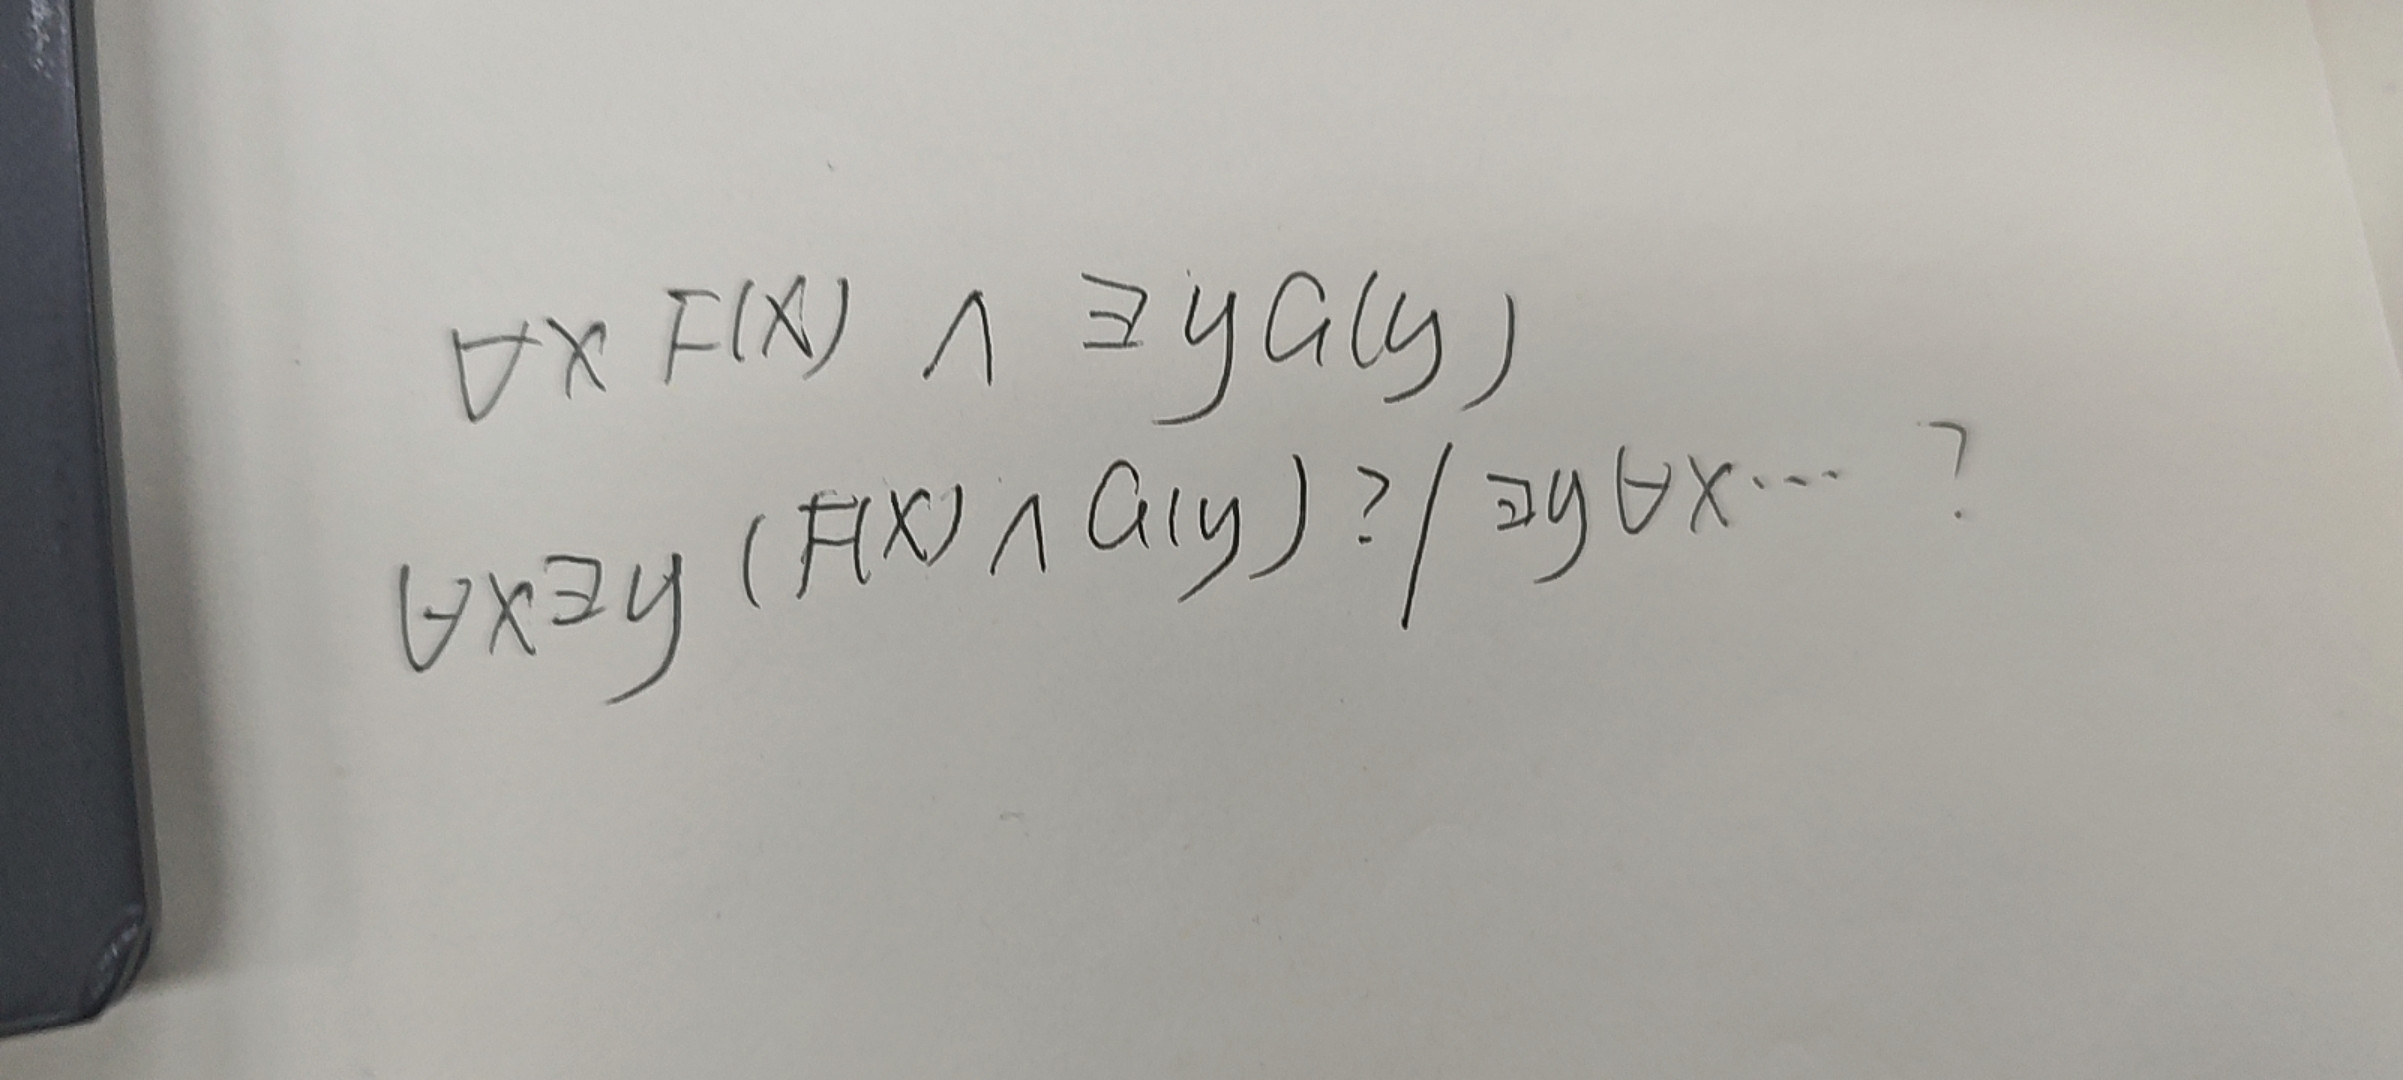 ∀x F(x) ∧ ∃y G(y)
∀x∃y (F(x) ∧ G(y)) ? / ∃y∀x... ?